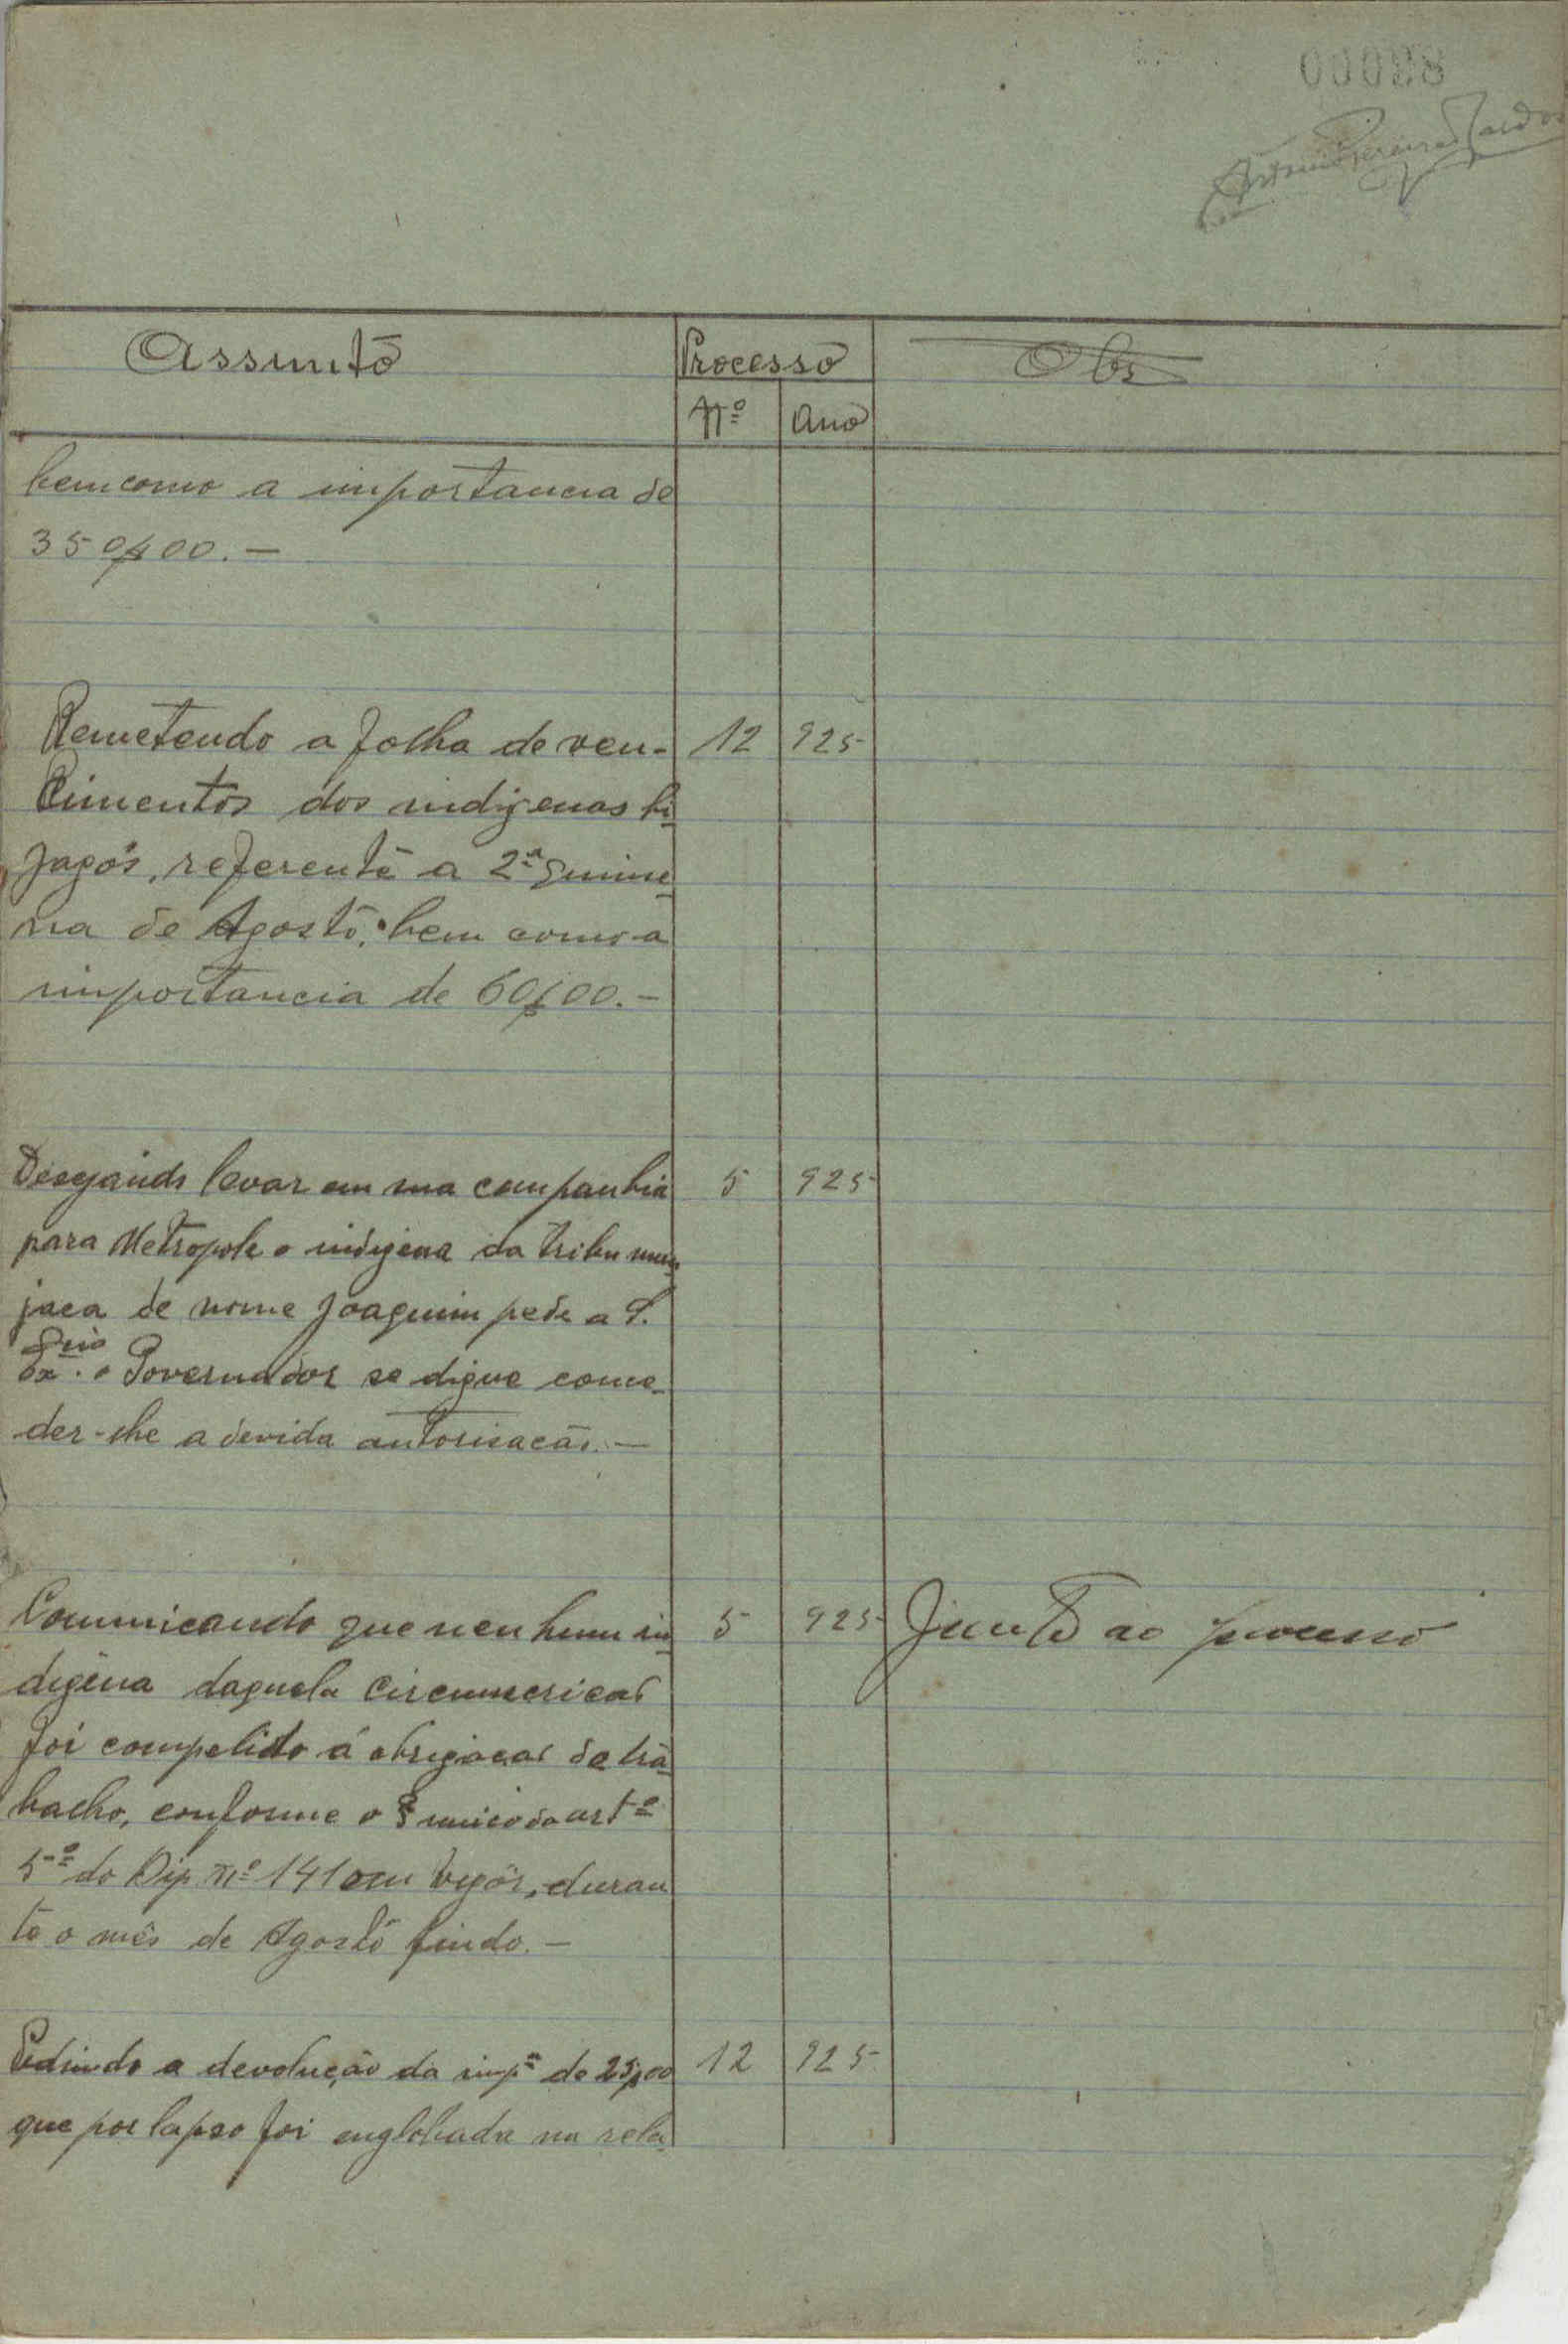 Assunto Processo Obs
Nº Ano
bem como a importancia de
350$00.—
Remetendo a folha de ven- 12 925
cimentos dos indigenas bi
jagós, referente a 2ª quinze
na de Agosto, bem como a
importancia de 60$00.—
Desejando levar em sua companhia 5 925
para Metropole o indigena da tribu man
jaca de nome Joaquim pede a S.
Exª. o Governador se digne conce
der-lhe a devida autorisacão.—
Comunicando que nenhum in 5 925 Junto ao processo
digena daquela circunscricao
foi compelido á obrigacao de tra
balho, conforme o § unico do artº
5º do Dip. nº 141 em vigôr, duran
te o mês de Agosto findo.—
Pedindo a devolução da impª de 25$00 12 925
que por lapso foi englobada na rela